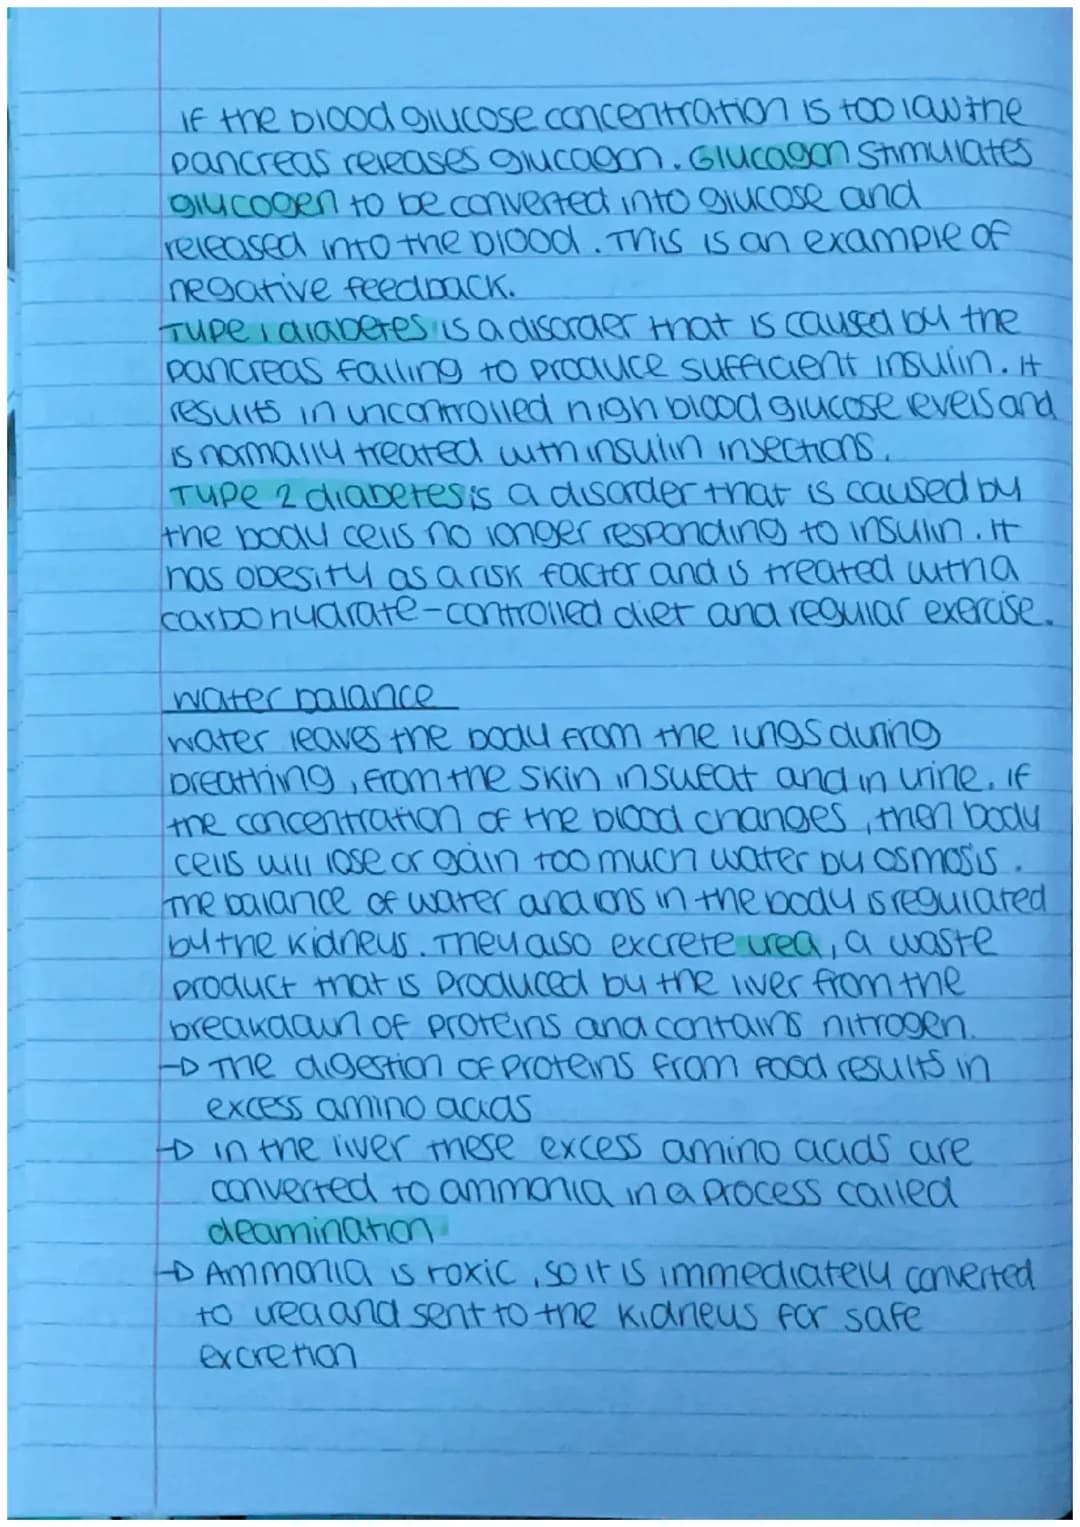 If the blood glucose concentration is too low the
pancreas releases glucagon. Glucagon stimulates
glycogen to be converted into glucose and
released into the blood. This is an example of
negative feedback.
Type 1 diabetes is a disorder that is caused by the
pancreas failing to produce sufficient insulin. It
results in uncontrolled high blood glucose levels and
is normally treated with insulin injections.
Type 2 diabetes is a disorder that is caused by
the body cells no longer responding to insulin. It
has obesity as a risk factor and is treated with a
carbohydrate-controlled diet and regular exercise.
Water balance
Water leaves the body from the lungs during
breathing, from the skin in sweat and in urine. If
the concentration of the blood changes, then body
cells will lose or gain too much water by osmosis.
The balance of water and ions in the body is regulated
by the kidneys. They also excrete urea, a waste
product that is produced by the liver from the
breakdown of proteins and contains nitrogen.
→ The digestion of proteins from food results in
excess amino acids
→ In the liver these excess amino acids are
converted to ammonia in a process called
deamination
→ Ammonia is toxic, so it is immediately converted
to urea and sent to the kidneys for safe
excretion